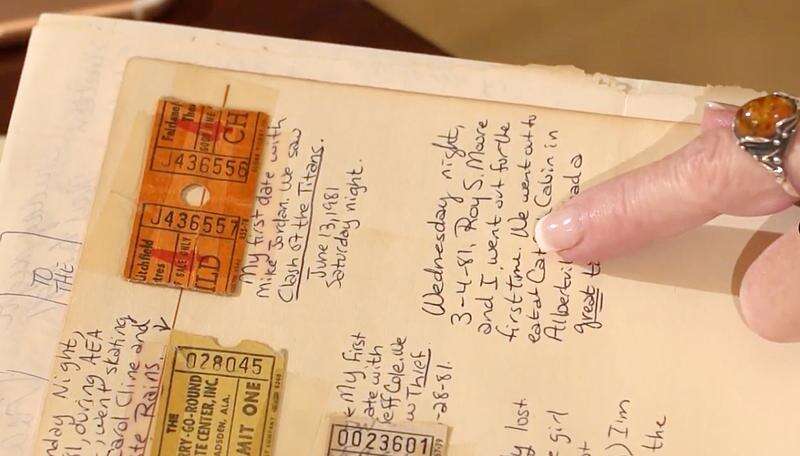 Litchfield
tres
CHILD
J436557
Faldane
Thea
J436556
My first date with
Mike Jordan. We saw
Clash of the Titans.
June 13, 1981
Saturday night.
Wednesday night,
3-4-81, Roy S. Moore
and I went out for the
first time. We went out to
eat at Cat Cabin in
Albertvi had a
great ti
nday Night,
81, during AEA
went skating
Carol Cline and
Rains.
028045
THE
RY-GO-ROUND
TE CENTER, INC.
ADSDEN, ALA.
MIT ONE
My first
ate with
eff Cole. We
w Thief.
-28-81.
0023601
y lost
e girl
ot
) I'm
the
TO
THE